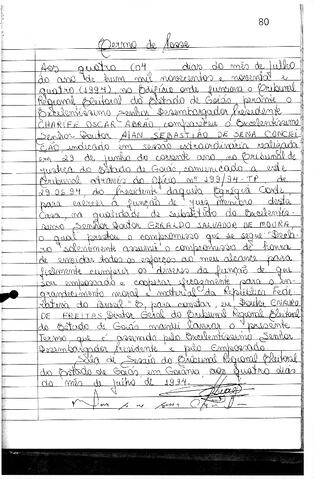 80
Termo de Posse
Aos quatro (04 dias do mês de julho
do ano de hum mil novecentos e noventa e
quatro (1994), no Edifício onde funciona o Tribunal
Regional Eleitoral do Estado de Goiás, perante o
Excelentíssimo Senhor Desembargador Presidente
CHARIFE OSCAR ABRÃO compareceu o Excelentíssimo
Senhor Doutor ALAN SEBASTIÃO DE SENA CONCEI
ÇÃO, indicado em sessão extraordinária realizada
em 29 de junho do corrente ano, no Tribunal de
Justiça do Estado de Goiás, comunicado a este
Tribunal através do Ofício nº 299/94-TP de
29.06.94 do Presidente daquela Egrégia Corte,
para exercer a função de Juiz Membro desta
Casa, na qualidade de substituto do Excelentís-
simo Senhor Doutor GERALDO SALVADOR DE MOURA,
o qual prestou o compromisso que se segue "Decla-
ro solenemente assumir o compromisso de honra
de envidar todos os esforços ao meu alcance para
fielmente cumprir os deveres da função de que
sou empossado e cooperar eficazmente para o en-
grandecimento moral e material da República Fede
rativa do Brasil". E, para constar, eu Doutor
DE FREITAS, Diretor Geral do Tribunal Regional Eleitoral
do Estado de Goiás mandei lavrar o presente
Termo que é assinado pelo Excelentíssimo Senhor
Desembargador Presidente e pelo Empossado.
Sala de Sessões do Tribunal Regional Eleitoral
do Estado de Goiás, em Goiânia, aos quatro dias
do mês de julho de 1994.